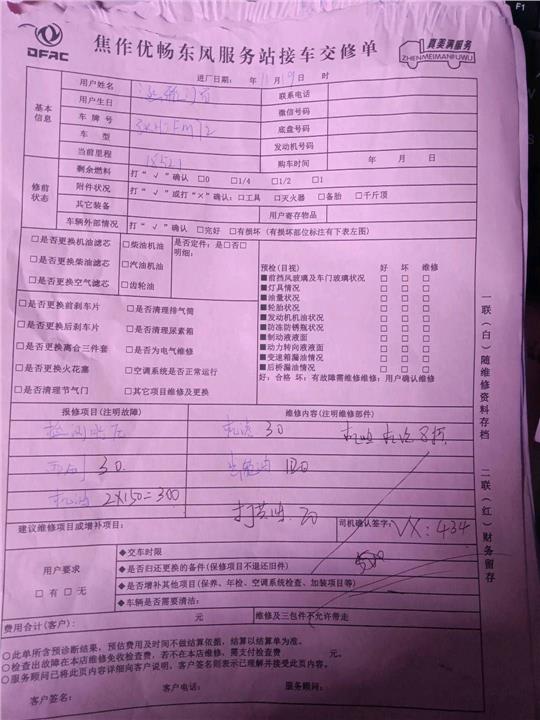 DFAC
焦作优畅东风服务站接车交修单
真美满服务
ZHENMEIMANFUWU
进厂日期: 年 11 月 19 日 时
基本信息
用户姓名
联系电话
用户生日
微信号码
车牌号
底盘号码
车型
发动机号码
当前里程
购车时间 年 月 日
修前状态
剩余燃料 打“√”确认 □0 □1/4 □1/2 □1
附件状况 打“√”或打“×”确认: □工具 □灭火器 □备胎 □千斤顶
其它装备
用户寄存物品
车辆外部情况 打“√”确认 □完好 □有损坏 (有损坏部位标注有下表左图)
□是否更换机油滤芯 □柴油机油
□是否更换柴油滤芯 □汽油机油
□是否更换空气滤芯 □齿轮油
是否定件: 是□否□
明细:
□是否更换前刹车片 □是否清理排气筒
□是否更换后刹车片 □是否清理尿素箱
□是否更换离合三件套 □是否为电气维修
□是否更换火花塞 □空调系统是否正常运行
□是否清理节气门 □其它项目维修及更换
预检(目视) 好 坏 维修
■前挡风玻璃及车门玻璃状况 □ □ □
■灯具情况 □ □ □
■油量状况 □ □ □
■轮胎状况 □ □ □
■发动机机油状况 □ □ □
■防冻防锈瓶状况 □ □ □
■制动液液面 □ □ □
■动力转向液液面 □ □ □
■变速箱漏油情况 □ □ □
■后桥漏油情况 □ □ □
好: 合格 坏: 有故障需维修维修: 用户确认维修
一联(白)随维修资料存档
二联(红)财务留存
报修项目(注明故障)
维修内容(注明维修部件)
30
30.
120
机油 2×150=300
打黄油 20
建议维修项目或增补项目:
司机确认签字:
VX: 434
用户要求
□有 □无
◆交车时限
◆是否归还更换的备件(保修项目不退还旧件)
500
◆是否增补其他项目(保养、年检、空调系统检查、加装项目等)
◆车辆是否需要清洁:
费用合计(客户): 元
维修及三包件不允许带走
○此单所含预诊断结果，预估费用及时间不做结算依据，结算以结算单为准。
○检查出故障在本店维修免收检查费，若不在本店维修、需支付检查费 元。
○服务顾问已将此页内容详细向客户说明，客户签名则表示已理解并接受此页内容。
客户签名: 客户电话: 服务顾问: